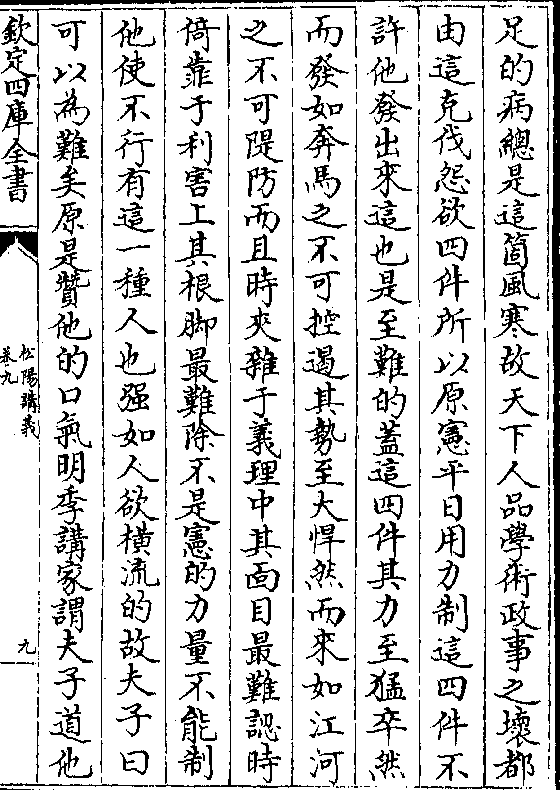 足的病總是這箇風寒故天下人品學術政事之壞都
由這克伐怨欲四件所以原憲平日用力制這四件不
許他發出來這也是至難的蓋這四件其力至猛卒然
而發如奔馬之不可控遏其勢至大悍然而來如江河
之不可隄防而且時夾雜于義理中其面目最難認時
倚靠于利害上其根脚最難除不是憲的力量不能制
他使不行有這一種人也强如人欲橫流的故夫子曰
可以為難矣原是贊他的口氣明季講家謂夫子道他
欽定四庫全書
松陽講義
卷九
九